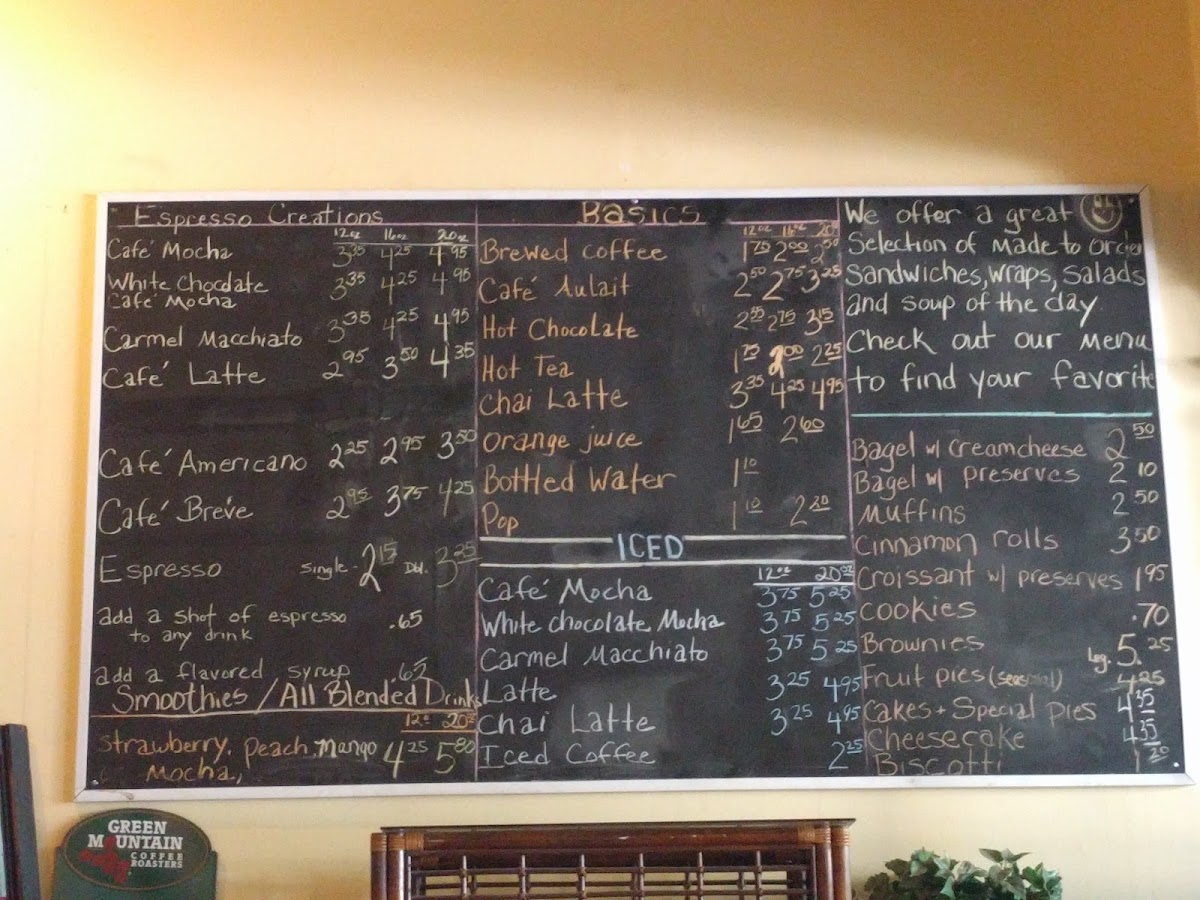 Espresso Creations
12oz 16oz 20oz
Café Mocha 3.35 4.25 4.95
White Chocolate 3.35 4.25 4.95
Café Mocha
Carmel Macchiato 3.35 4.25 4.95
Café Latte 2.95 3.50 4.35
Café Americano 2.25 2.95 3.50
Café Breve 2.95 3.75 4.25
Espresso Single - 2.15 Dbl. 3.25
add a shot of espresso .65
to any drink
add a flavored syrup .65
Smoothies / All Blended Drinks
12oz 20oz
Strawberry, Peach, Mango 4.25 5.80
Mocha,
Basics
12oz 16oz 20oz
Brewed coffee 1.75 2.00 2.50
Café Aulait 2.50 2.75 3.25
Hot Chocolate 2.55 2.75 3.15
Hot Tea 1.75 2.00 2.25
Chai Latte 3.35 4.25 4.95
Orange juice 1.65 2.60
Bottled Water 1.10
Pop 1.10 2.20
ICED
12oz 20oz
Café Mocha 3.75 5.25
White chocolate Mocha 3.75 5.25
Carmel Macchiato 3.75 5.25
Latte 3.25 4.95
Chai Latte 3.25 4.95
Iced Coffee 2.25
We offer a great
Selection of Made to Order
Sandwiches, Wraps, Salads
and soup of the day
Check out our Menu
to find your favorite
Bagel w/ Creamcheese 2.50
Bagel w/ preserves 2.10
Muffins 2.50
Cinnamon rolls 3.50
Croissant w/ preserves 1.95
Cookies .70
Brownies Lg. 5.25
Fruit pies (seasonal) 4.25
Cakes + Special pies 4.35
Cheesecake 4.35
Biscotti 1.20
GREEN
MOUNTAIN
COFFEE
ROASTERS